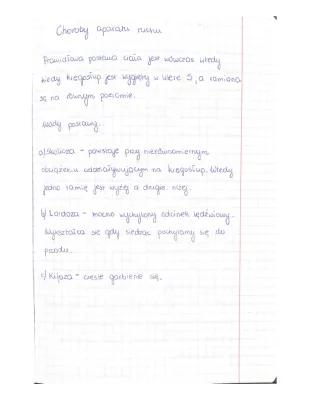 Choroby aparatu ruchu
Prawidłowa postawa ciała jest wówczas wtedy
kiedy kręgosłup jest wygięty w literę S, a ramiona
są na równym poziomie.
Wady postawy.
a) Skolioza - powstaje przy nierównomiernym
obciążeniu oddziaływującym na kręgosłup. Wtedy
jedno ramię jest wyżej a drugie niżej.
b) Lordoza - mocno wychylony odcinek lędźwiowy.
Wykształca się gdy siedząc pochylamy się do
przodu.
c) Kifoza - częste garbienie się.